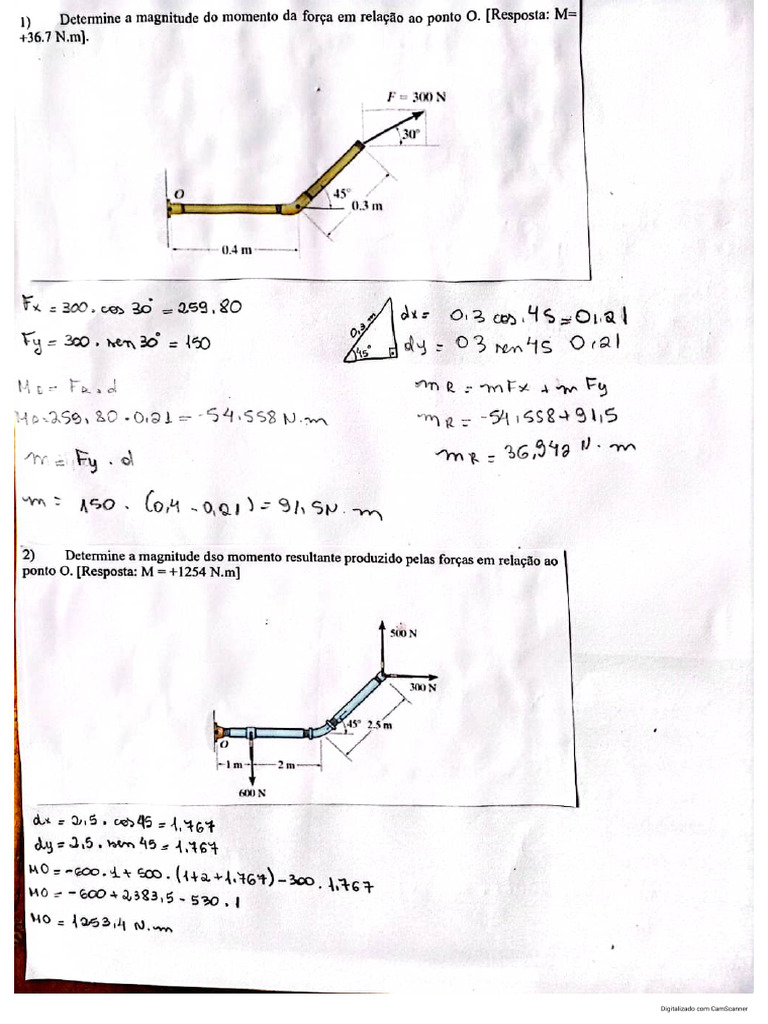 1) Determine a magnitude do momento da força em relação ao ponto O. [Resposta: M=
+36.7 N.m].
F = 300 N
30°
O
45°
0.3 m
0.4 m
Fx = 300 . cos 30° = 259,80
Fy = 300 . sen 30° = 150
0,3 m
45°
dx = 0,3 cos.45 = 0,21
dy = 03 sen 45 0,21
Mo = FR . d
Mo = 259,80 . 0,21 = -54.558 N.m
m = Fy . d
m = 150 . (0,4 - 0,21) = 91,5N.m
mR = mFx + mFy
mR = -54,558 + 91,5
mR = 36,942 N.m
2) Determine a magnitude dso momento resultante produzido pelas forças em relação ao
ponto O. [Resposta: M = +1254 N.m]
500 N
300 N
45° 2.5 m
O
1 m
2 m
600 N
dx = 2,5 . cos 45 = 1,767
dy = 2,5 . sen 45 = 1,767
MO = -600.1 + 500 . (1+2+1.767) - 300 . 1,767
MO = -600 + 2383,5 - 530.1
MO = 1253,4 N.m
Digitalizado com CamScanner